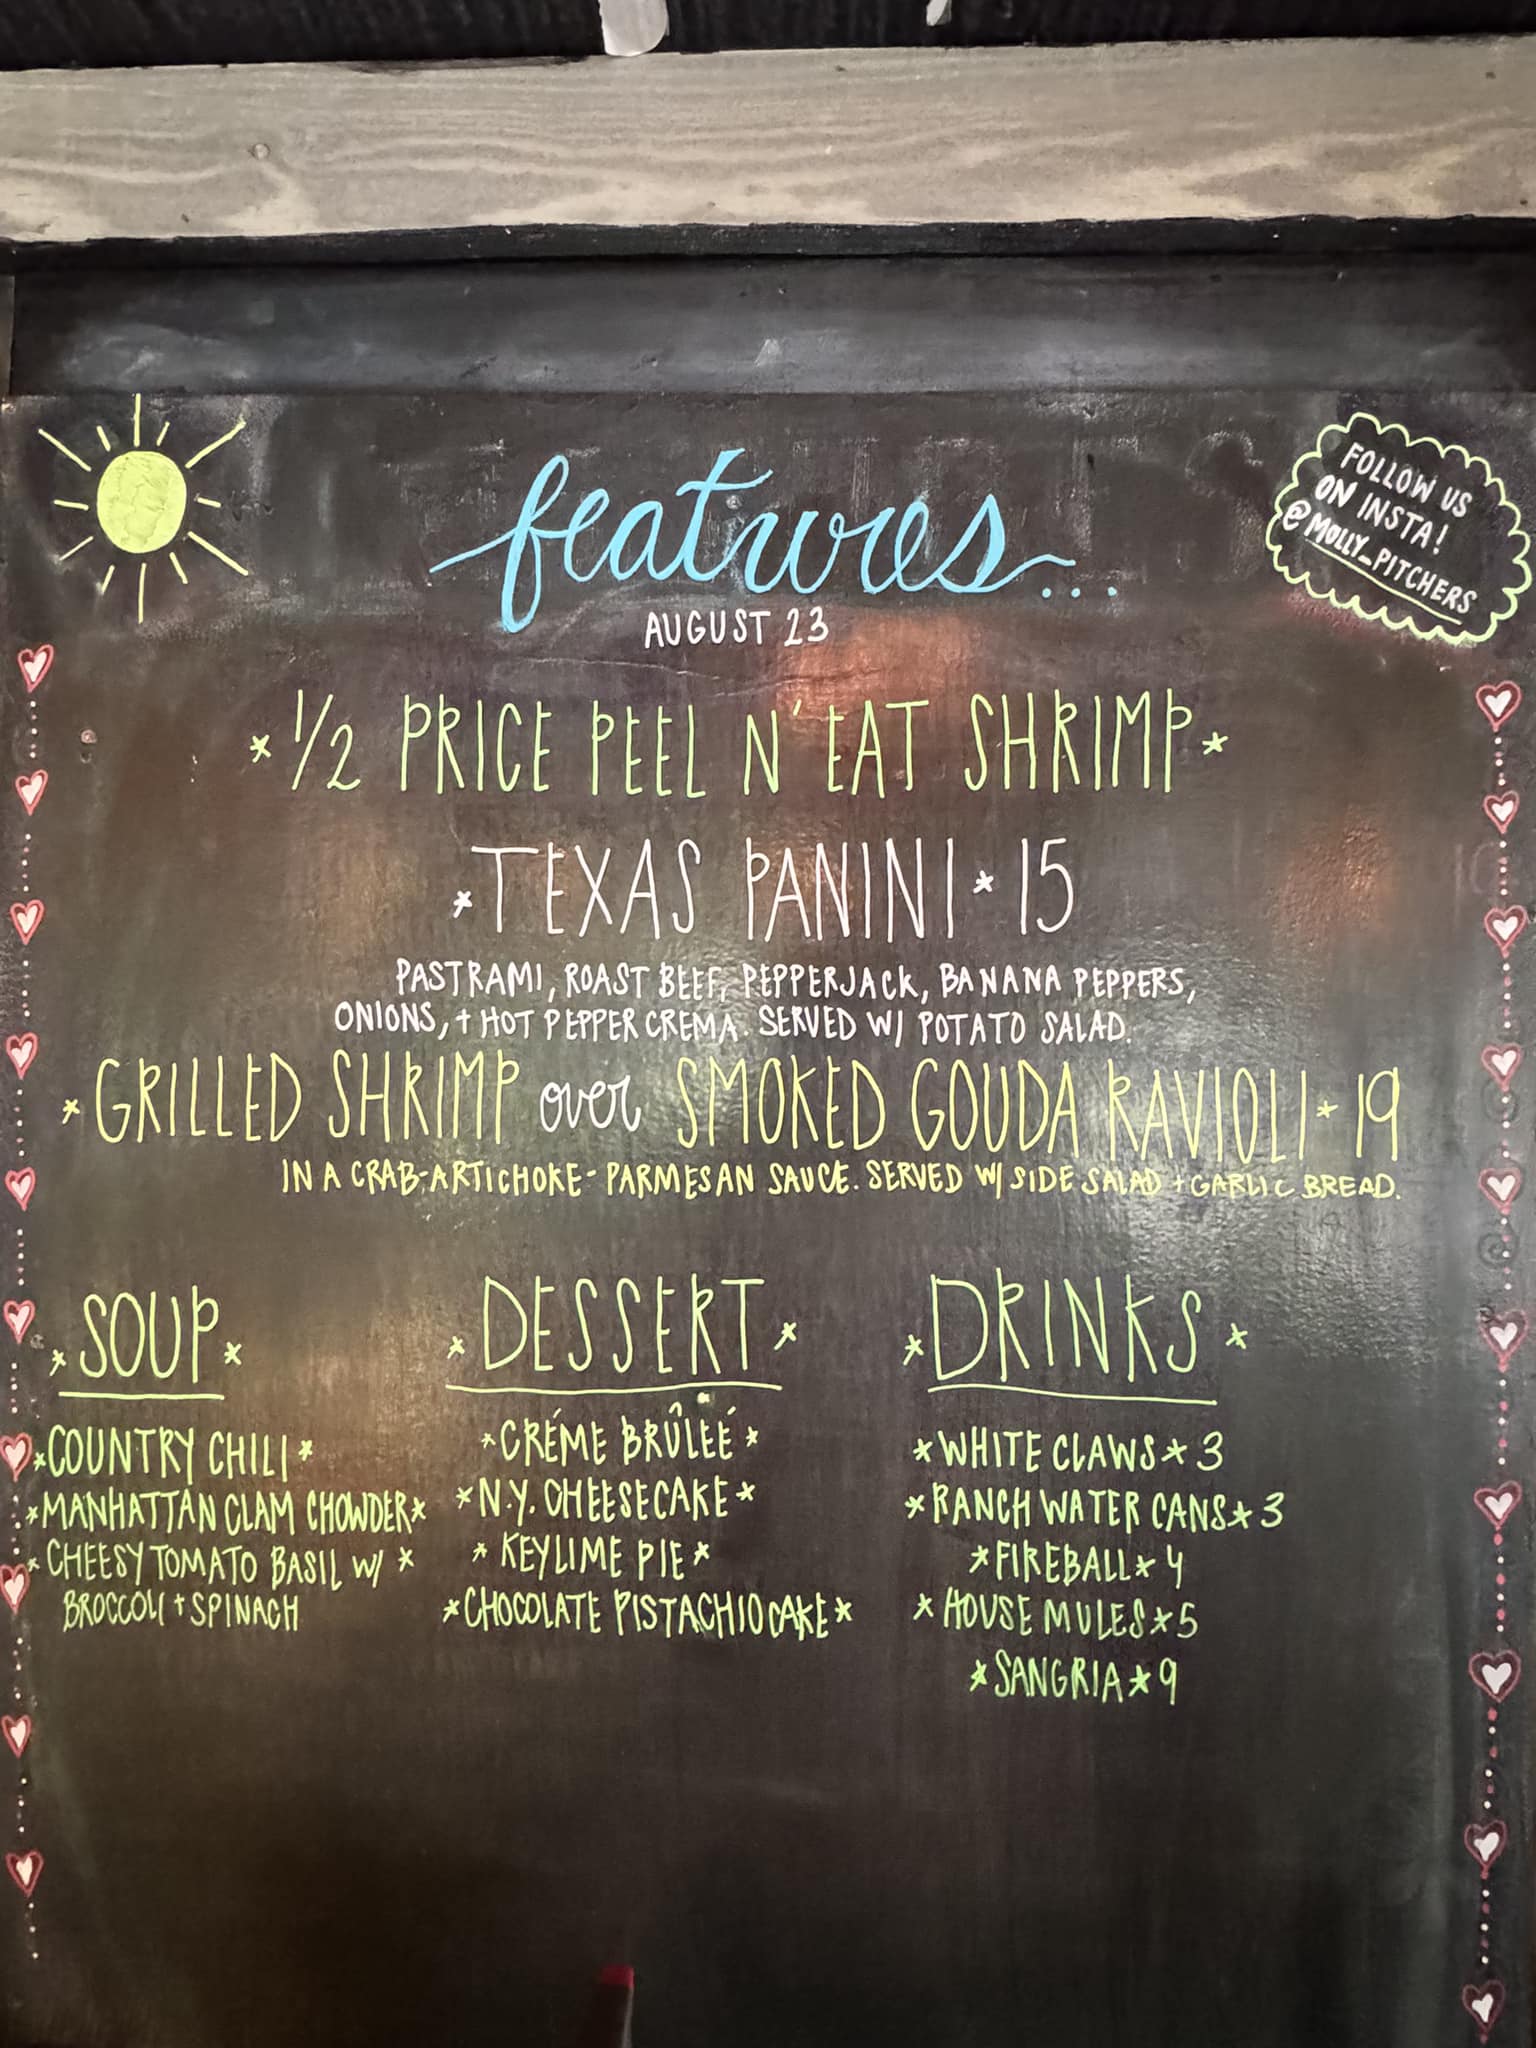 features...
AUGUST 23
FOLLOW US
ON INSTA!
@MOLLY_PITCHERS
*1/2 PRICE PEEL N' EAT SHRIMP*
*TEXAS PANINI*15
PASTRAMI, ROAST BEEF, PEPPERJACK, BANANA PEPPERS,
ONIONS, + HOT PEPPER CREMA. SERVED W/ POTATO SALAD.
*GRILLED SHRIMP over SMOKED GOUDA RAVIOLI*19
IN A CRAB-ARTICHOKE-PARMESAN SAUCE. SERVED W/ SIDE SALAD + GARLIC BREAD.
*SOUP*
*COUNTRY CHILI*
*MANHATTAN CLAM CHOWDER*
*CHEESY TOMATO BASIL W/ *
BROCCOLI + SPINACH
*DESSERT*
*CRÉME BRÛLEÉ*
*N.Y. CHEESECAKE*
*KEYLIME PIE*
*CHOCOLATE PISTACHIO CAKE*
*DRINKS*
*WHITE CLAWS*3
*RANCH WATER CANS*3
*FIREBALL*4
*HOUSE MULES*5
*SANGRIA*9